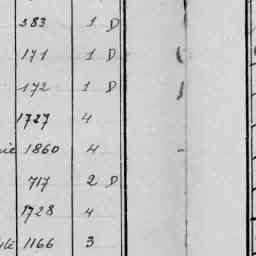 383 1 D
171 1 D
172 1 D
1727 4
1860 4
717 2 D
1728 4
1166 3